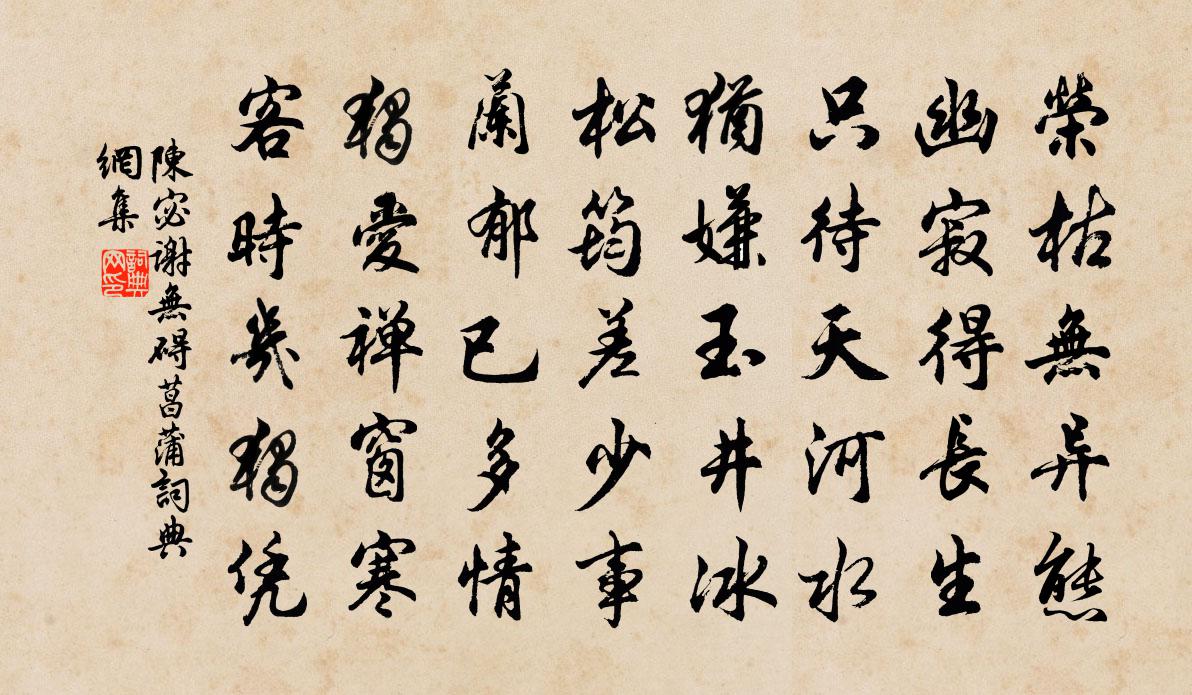 榮枯無异態
幽寂得長生
只待天河水
猶嫌玉井冰
松筠差少事
蘭郁已多情
獨愛禅窗寒
客時幾獨凭
陳宓謝無碍菖蒲詞典
網集
詞典
网印